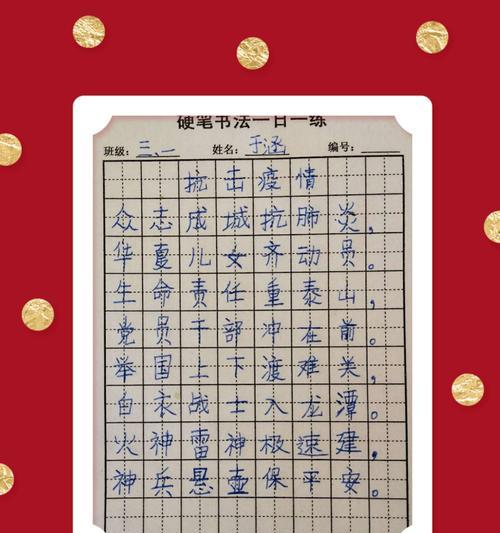 硬笔书法一日一练
班级：三、一 姓名：于涵 编号：
抗击疫情
众志成城抗肺炎，
华夏儿女齐动员。
生命责任重泰山，
党员干部冲在前。
举国上下渡难关，
白衣战士入龙潭。
火神雷神极速建，
神兵悬壶保平安。